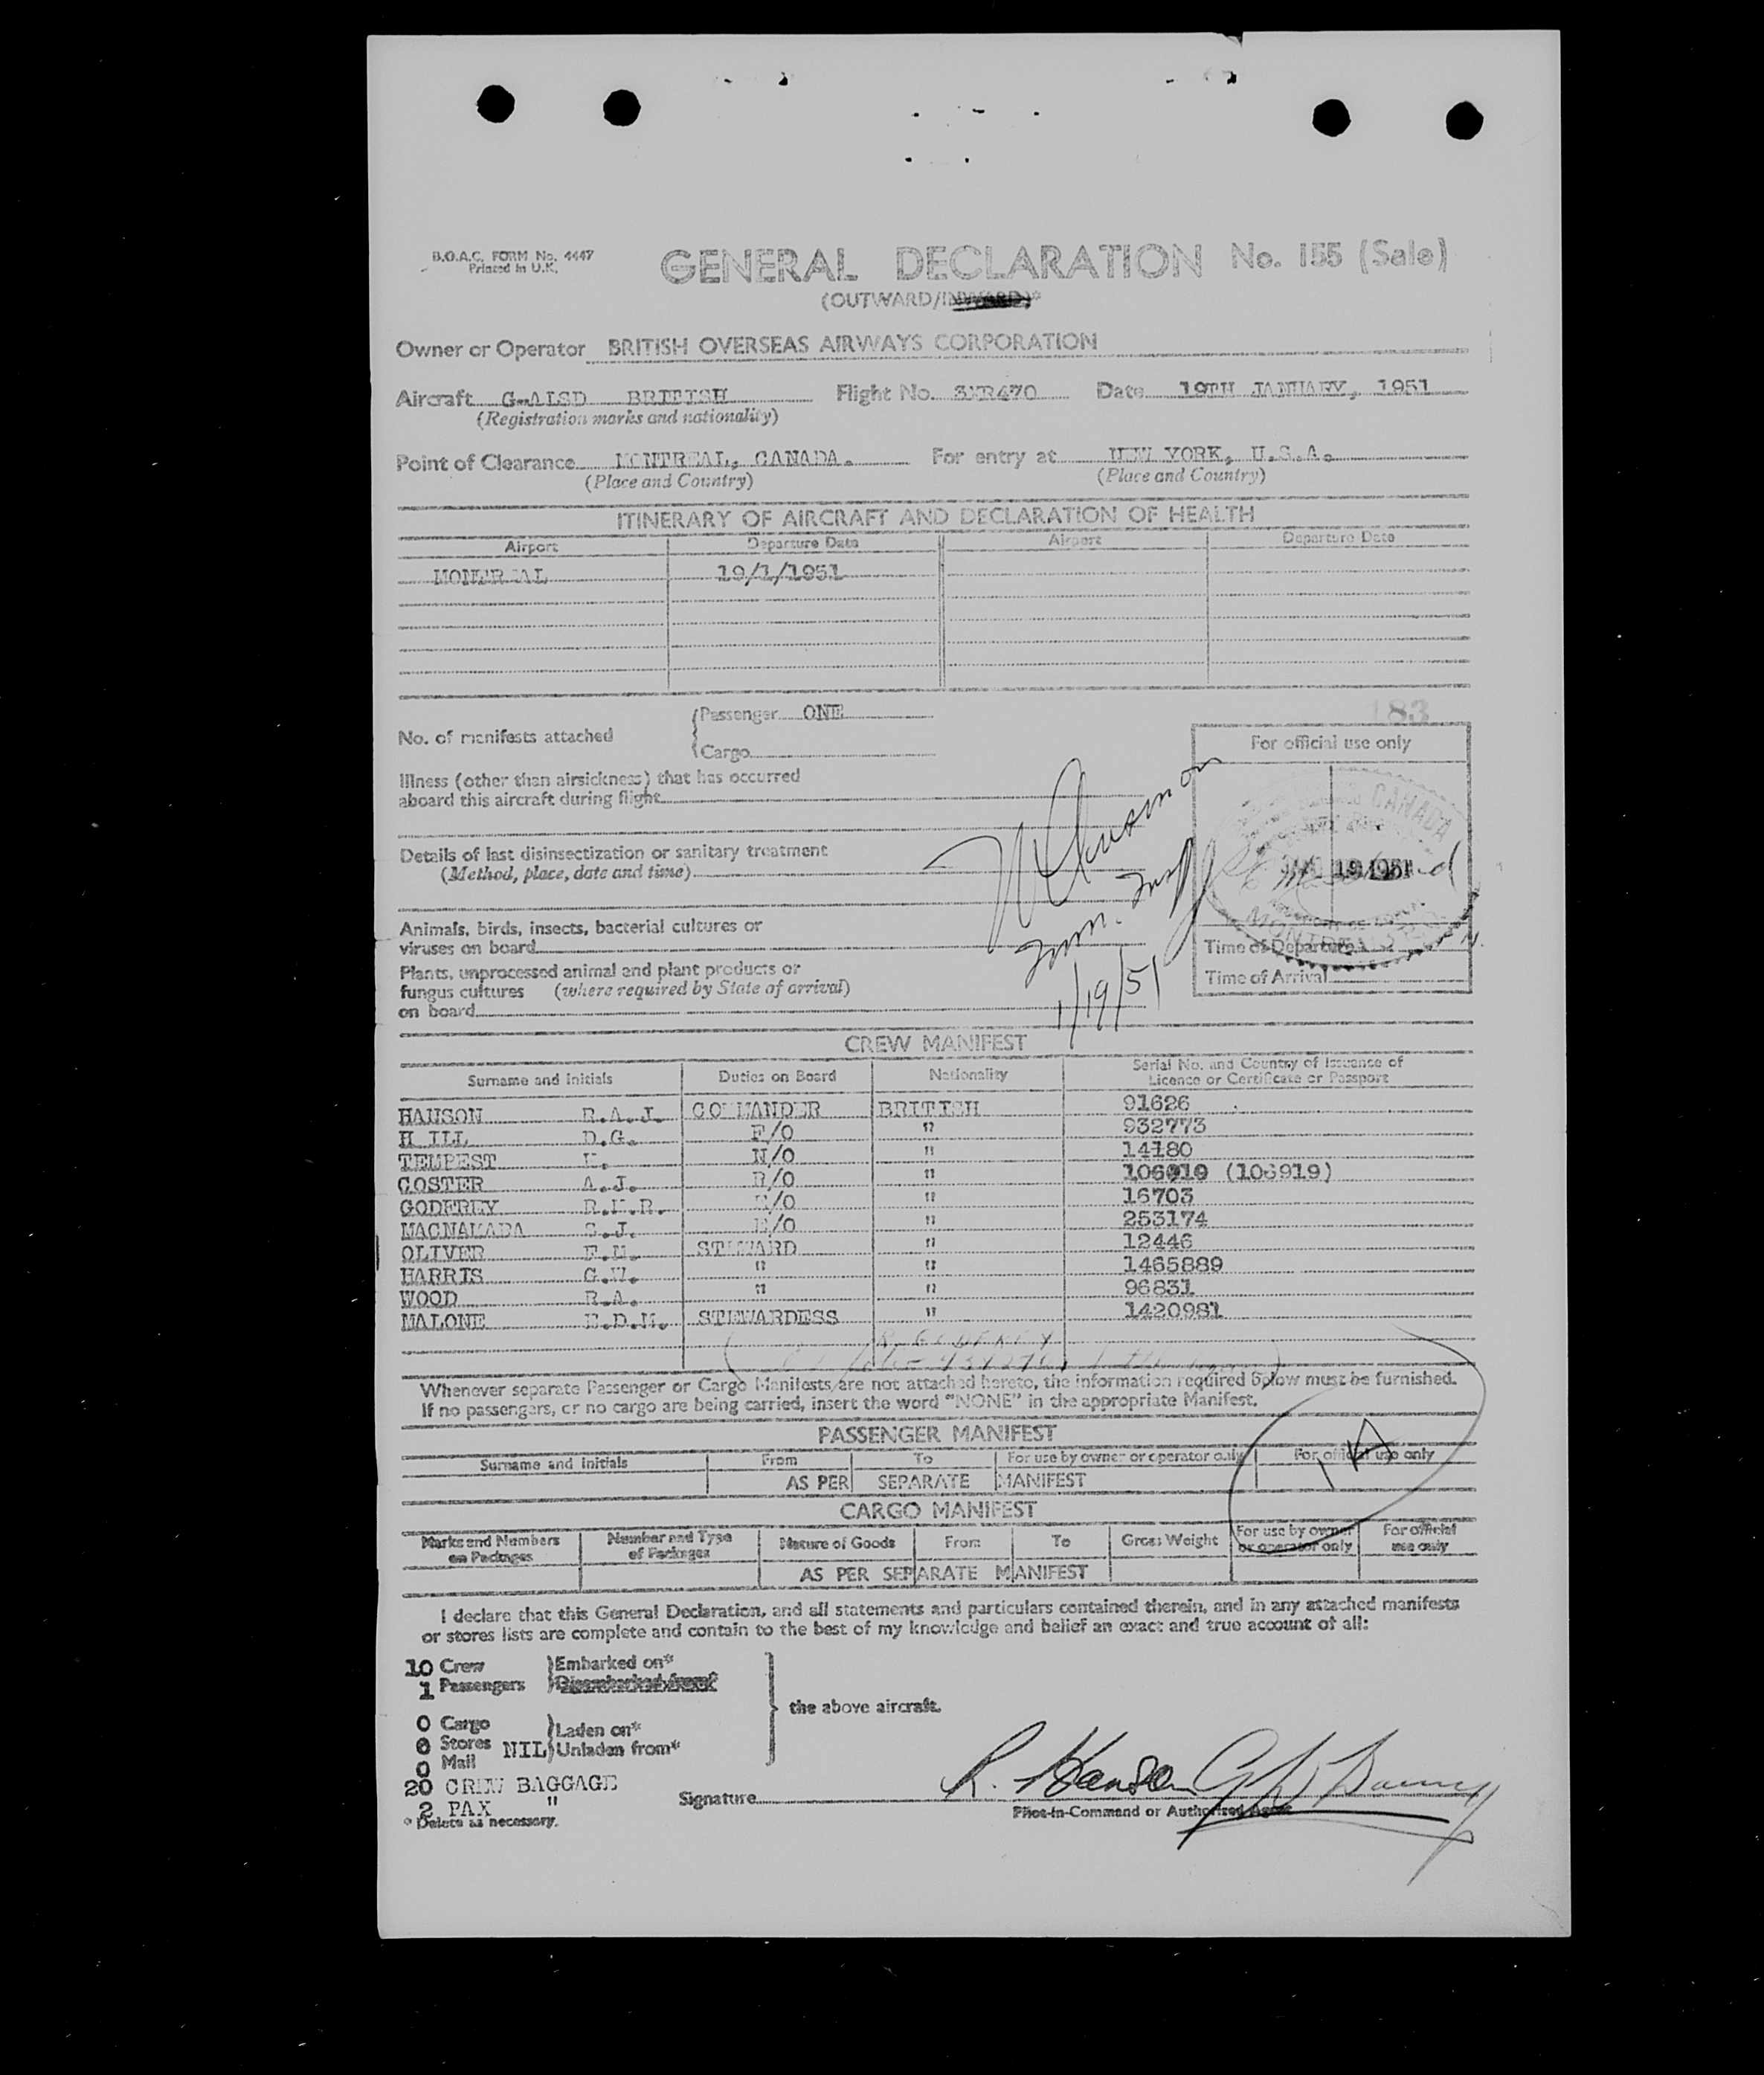 B.O.A.C. FORM No. 4447
Printed in U.K.
GENERAL DECLARATION No. 155 (Sale)
(OUTWARD/INWARD)*
Owner or Operator BRITISH OVERSEAS AIRWAYS CORPORATION
Aircraft G-ALSD BRITISH Flight No. Date 19TH JANUARY, 1951
(Registration marks and nationality)
Point of Clearance MONTREAL, CANADA. For entry at NEW YORK, U.S.A.
(Place and Country) (Place and Country)
ITINERARY OF AIRCRAFT AND DECLARATION OF HEALTH
Airport Departure Date Airport Departure Date
MONTREAL 19/1/1951
183
No. of manifests attached Passenger ONE
Cargo
For official use only
Illness (other than airsickness) that has occurred
aboard this aircraft during flight
CANADA
Details of last disinsectization or sanitary treatment
(Method, place, date and time)
19 1951
Imm. Insp
Animals, birds, insects, bacterial cultures or
viruses on board
Time of Departure
Plants, unprocessed animal and plant products or
fungus cultures (where required by State of arrival)
on board
Time of Arrival
1/19/51
CREW MANIFEST
Surname and initials Duties on Board Nationality Serial No. and Country of Issuance of
Licence or Certificate or Passport
HANSON R.A.J. COMMANDER BRITISH 91626
H ILL D.G. F/O " 932773
TEMPEST N/O " 14180
COSTER A.J. R/O " 106919 (106919)
GODFREY R.M.R. " 16703
MACNAMARA S.J. E/O " 253174
OLIVER F.M. STEWARD " 12446
HARRIS G.W. " " 1465889
WOOD R.A. " " 96831
MALONE E.D.M. STEWARDESS " 1420981
R. GODFREY
Whenever separate Passenger or Cargo Manifests are not attached hereto, the information required below must be furnished.
If no passengers, or no cargo are being carried, insert the word “NONE” in the appropriate Manifest.
PASSENGER MANIFEST
Surname and initials From To For use by owner or operator only For official use only
AS PER SEPARATE MANIFEST
CARGO MANIFEST
Marks and Numbers on Packages Number and Type of Packages Nature of Goods From To Gross Weight For use by owner or operator only For official use only
AS PER SEPARATE MANIFEST
I declare that this General Declaration, and all statements and particulars contained therein, and in any attached manifests
or stores lists are complete and contain to the best of my knowledge and belief an exact and true account of all:
10 Crew Embarked on*
1 Passengers Disembarked from*
the above aircraft.
0 Cargo Laden on*
0 Stores NIL Unladen from*
0 Mail
20 CREW BAGGAGE
2 PAX "
* Delete as necessary.
Signature R. Hanson
Pilot-in-Command or Authorised Agent